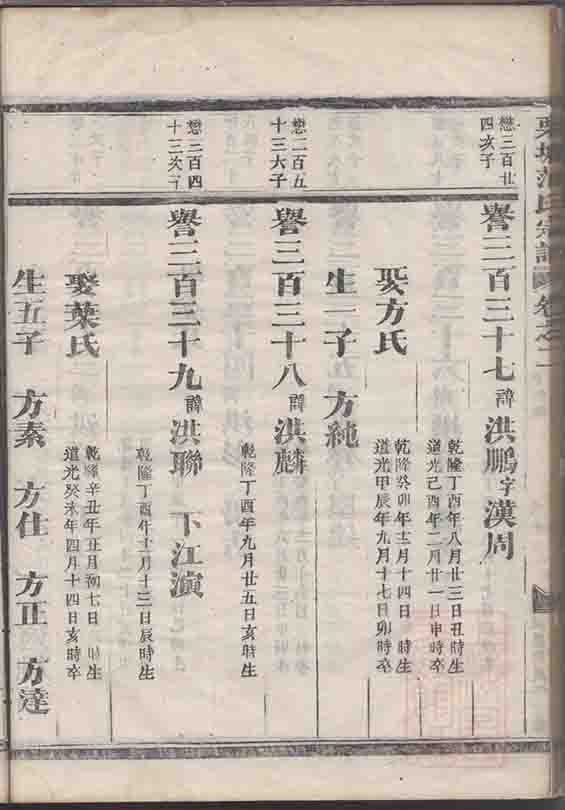 懋三百廿
四次子
譽三百三十七諱洪鵬字漢周
乾隆丁酉年八月廿三日丑時生
道光己酉年二月廿一日申時卒
娶方氏
乾隆癸卯年三月十四日 時生
道光甲辰年九月十七日卯時卒
生一子 方純
懋二百五
十三六子
譽三百三十八諱洪麟
乾隆丁酉年九月廿五日亥時生
懋三百四
十三次子
譽三百三十九諱洪聯 下江演
乾隆丁酉年十一月十三日辰時生
娶葉氏
乾隆辛丑年五月初七日 時生
道光癸未年四月十四日亥時卒
生五子 方素 方住 方正 方達
氏宗譜 卷之二